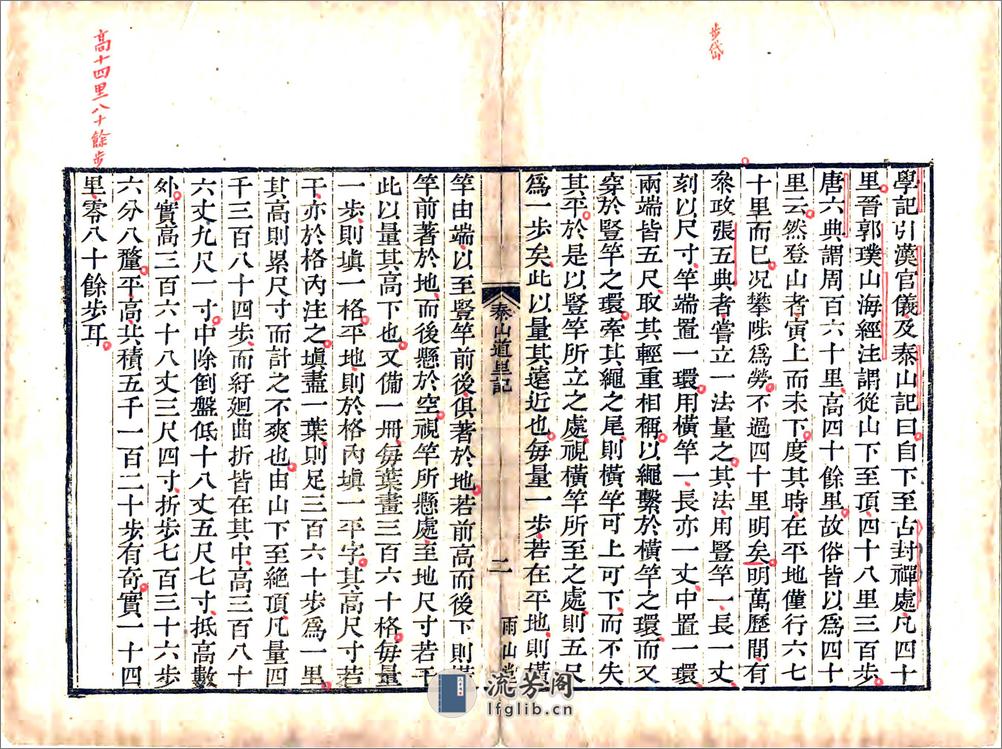 步岱
高十四里八十餘步
學記引漢官儀及泰山記曰自下至古封禪處凡四十
里晉郭璞山海經注謂從山下至頂四十八里三百步
唐六典謂周百六十里高四十餘里故俗皆以爲四十
里云然登山者寅上而未下度其時在平地僅行六七
十里而已况攀陟爲勞不過四十里明矣明萬歷間有
叅政張五典者嘗立一法量之其法用豎竿一長一丈
刻以尺寸竿端置一環用橫竿一長亦一丈中置一環
兩端皆五尺取其輕重相稱以繩繫於橫竿之環而又
穿於豎竿之環牽其繩之尾則橫竿可上可下而不失
其平於是以豎竿所立之處視橫竿所至之處則五尺
爲一步矣此以量其遠近也每量一步若在平地則橫
泰山道里記
二
雨山堂
竿由端以至豎竿前後俱著於地若前高而後下則橫
竿前著於地而後懸於空視竿所懸處至地尺寸若干
此以量其高下也又備一冊每葉畫三百六十格每量
一步則塡一格平地則於格內塡一平字其高尺寸若
干亦於格內注之塡盡一葉則足三百六十步爲一里
其高則累尺寸而計之不爽也由山下至絶頂凡量四
千三百八十四步而紆廻曲折皆在其中高三百八十
六丈九尺一寸中除倒盤低十八丈五尺七寸抵高數
外實高三百六十八丈三尺四寸折步七百三十六步
六分八釐平高共積五千一百二十步有奇實一十四
里零八十餘步耳
流芳阁
lfglib.cn